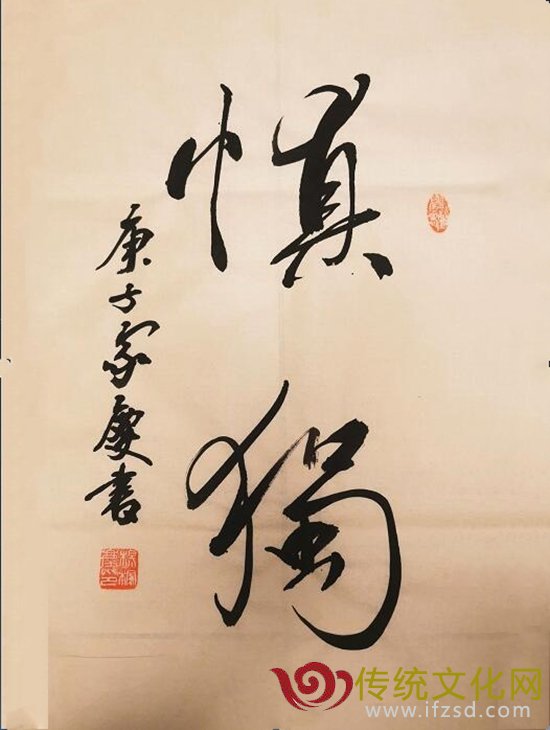 慎獨
庚子家慶書
传统文化网
www.ifzsd.com